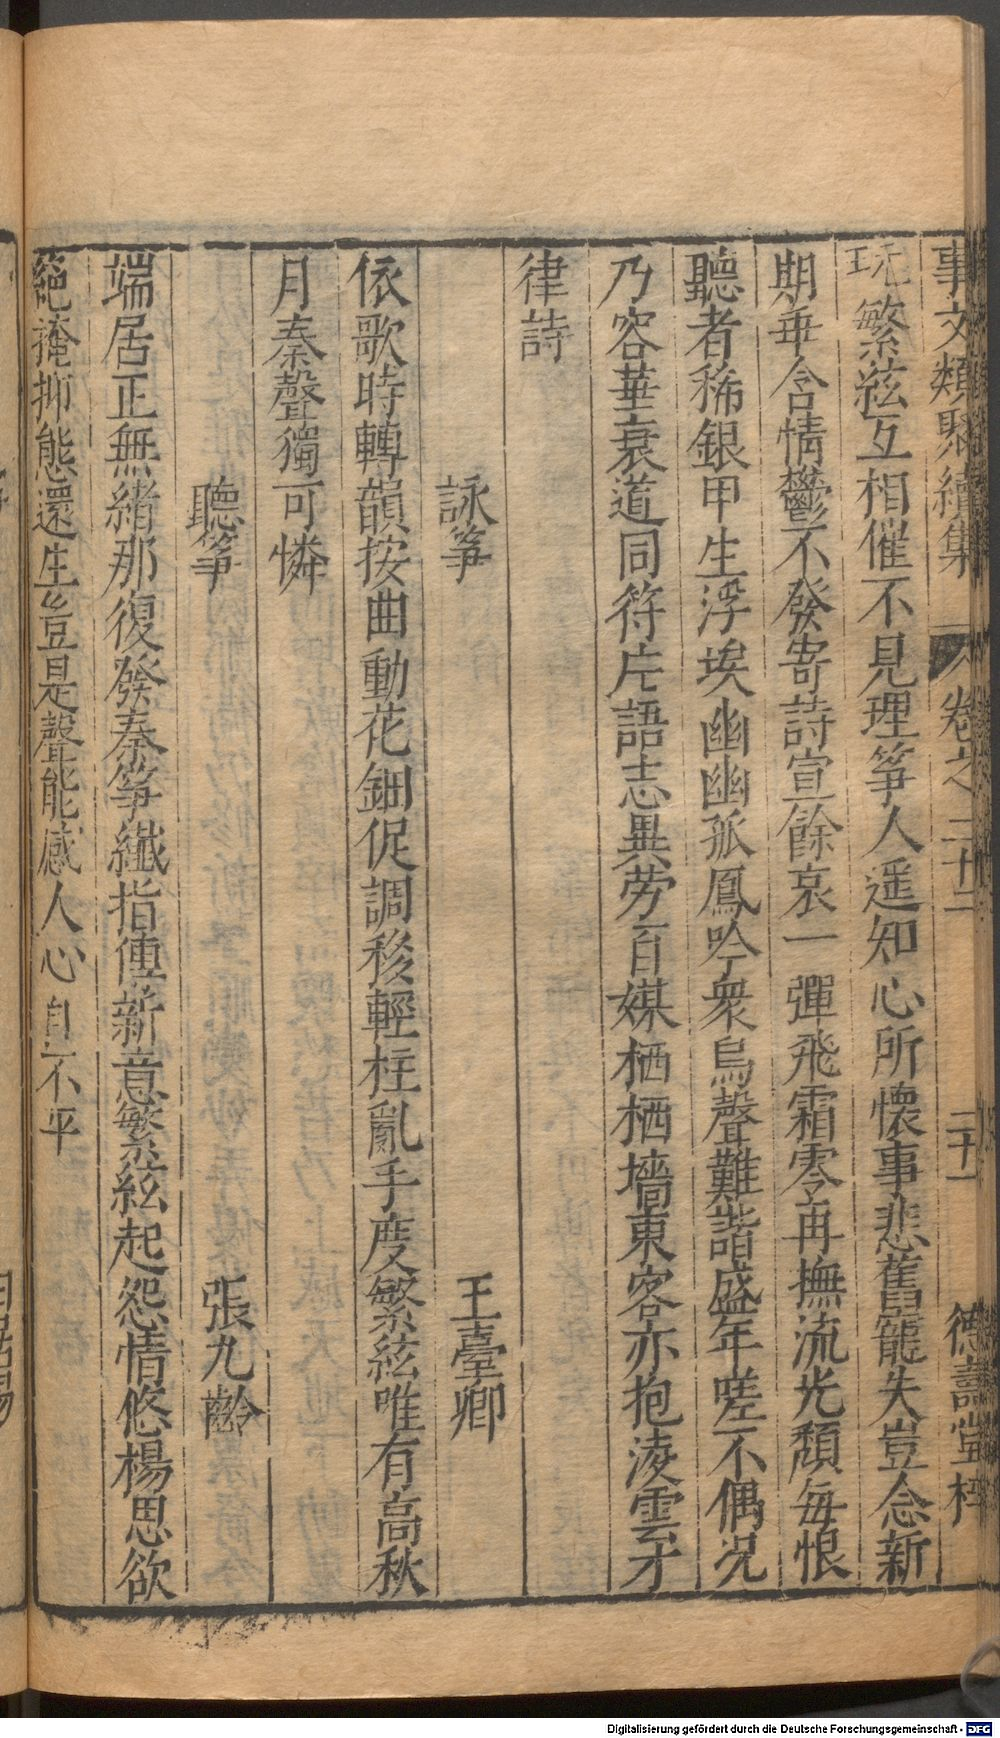 事文類聚續集 卷之二十二 二十一 德壽堂梓
玩繁絃互相催不見理筝人遥知心所懷事悲舊寵失豈念新
期乖含情鬱不發寄詩宣餘哀一彈飛霜零再撫流光頹每恨
聽者稀銀甲生浮埃幽幽孤鳳吟衆鳥聲難諧盛年嗟不偶况
乃容華衰道同符片語志異勞百媒栖栖墻東客亦抱凌雲才
律詩
詠筝 王臺卿
依歌時轉韻按曲動花鈿促調移輕柱亂手度繁絃唯有高秋
月秦聲獨可憐
聽筝 張九齡
端居正無緒那復發秦筝纖指傳新意繁絃起怨情悠楊思欲
絶掩抑態還生豈是聲能感人心自不平
Digitalisierung gefördert durch die Deutsche Forschungsgemeinschaft - DFG